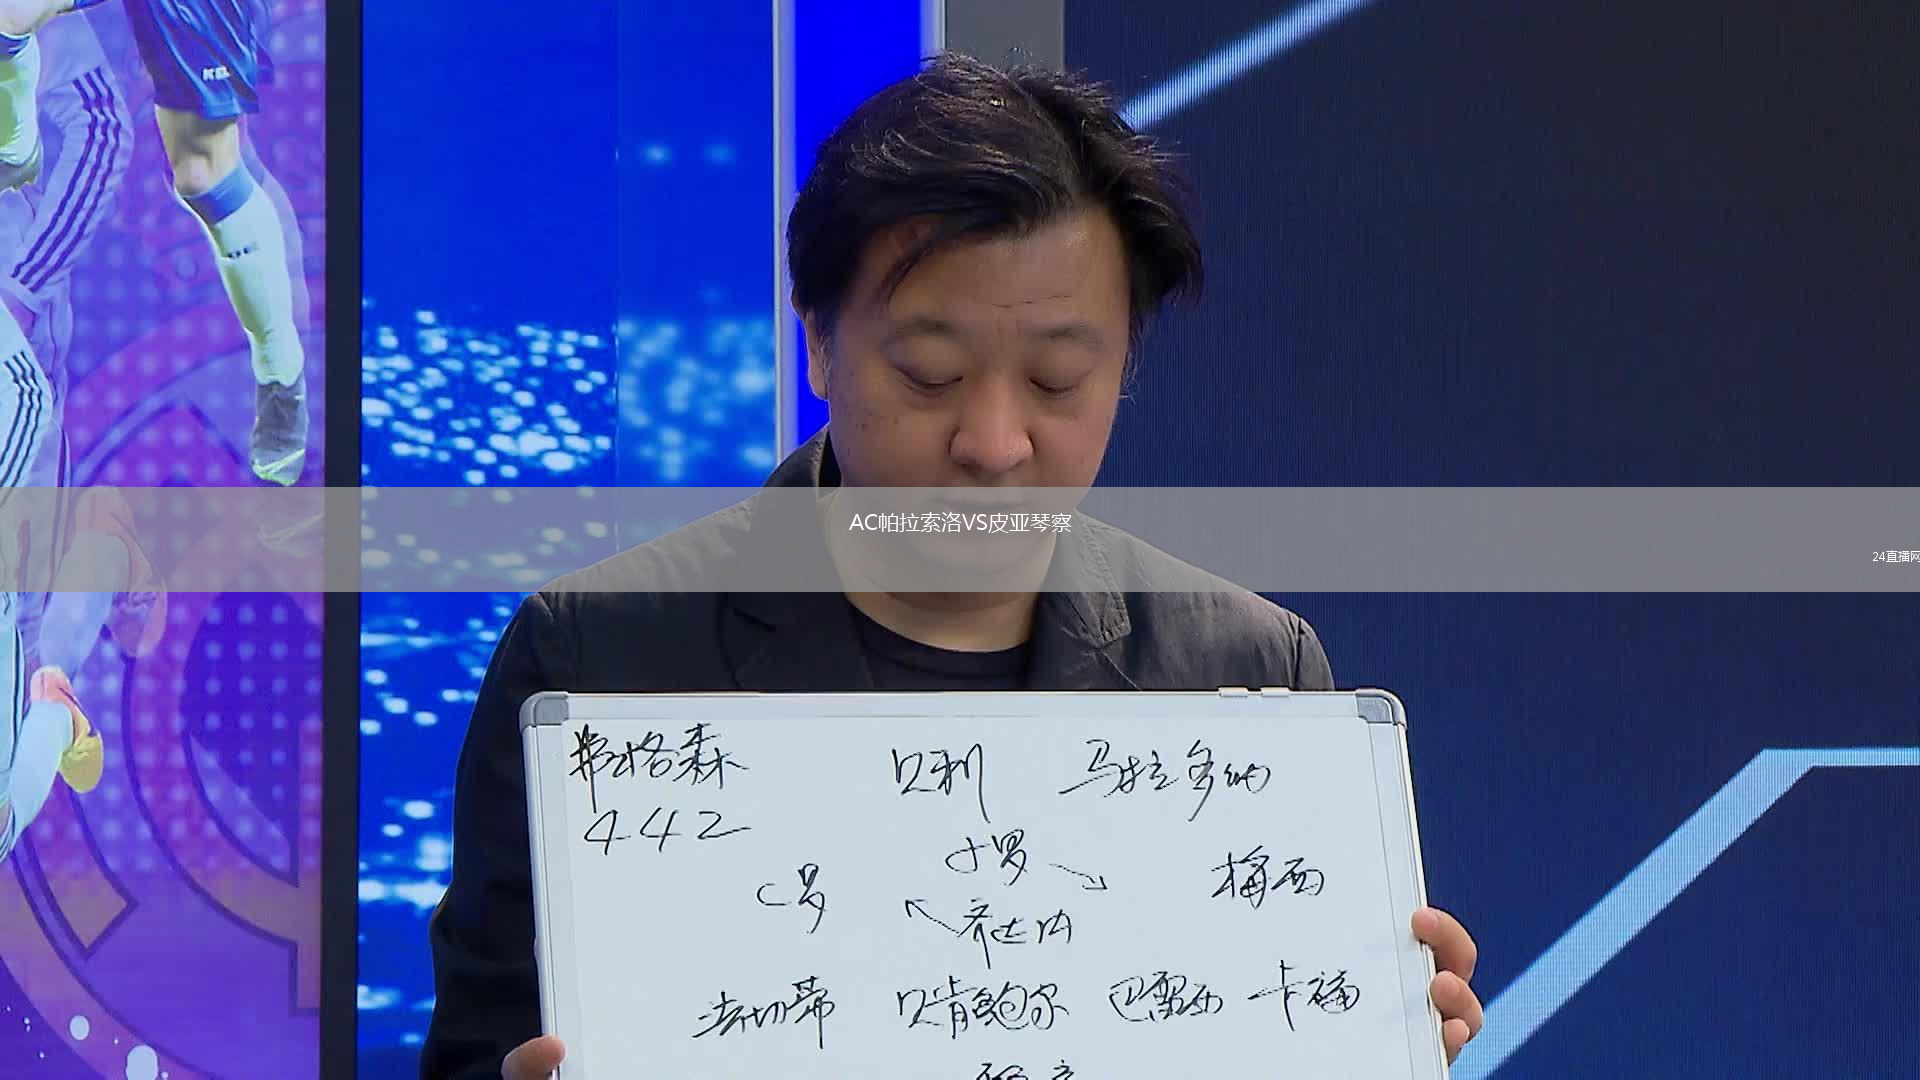 KEL
AC帕拉索洛VS皮亚琴察
24直播网
弗格森 贝利 马拉多纳
442
小罗
C罗 梅西
齐达内
法切蒂 贝肯鲍尔 巴雷西 卡福